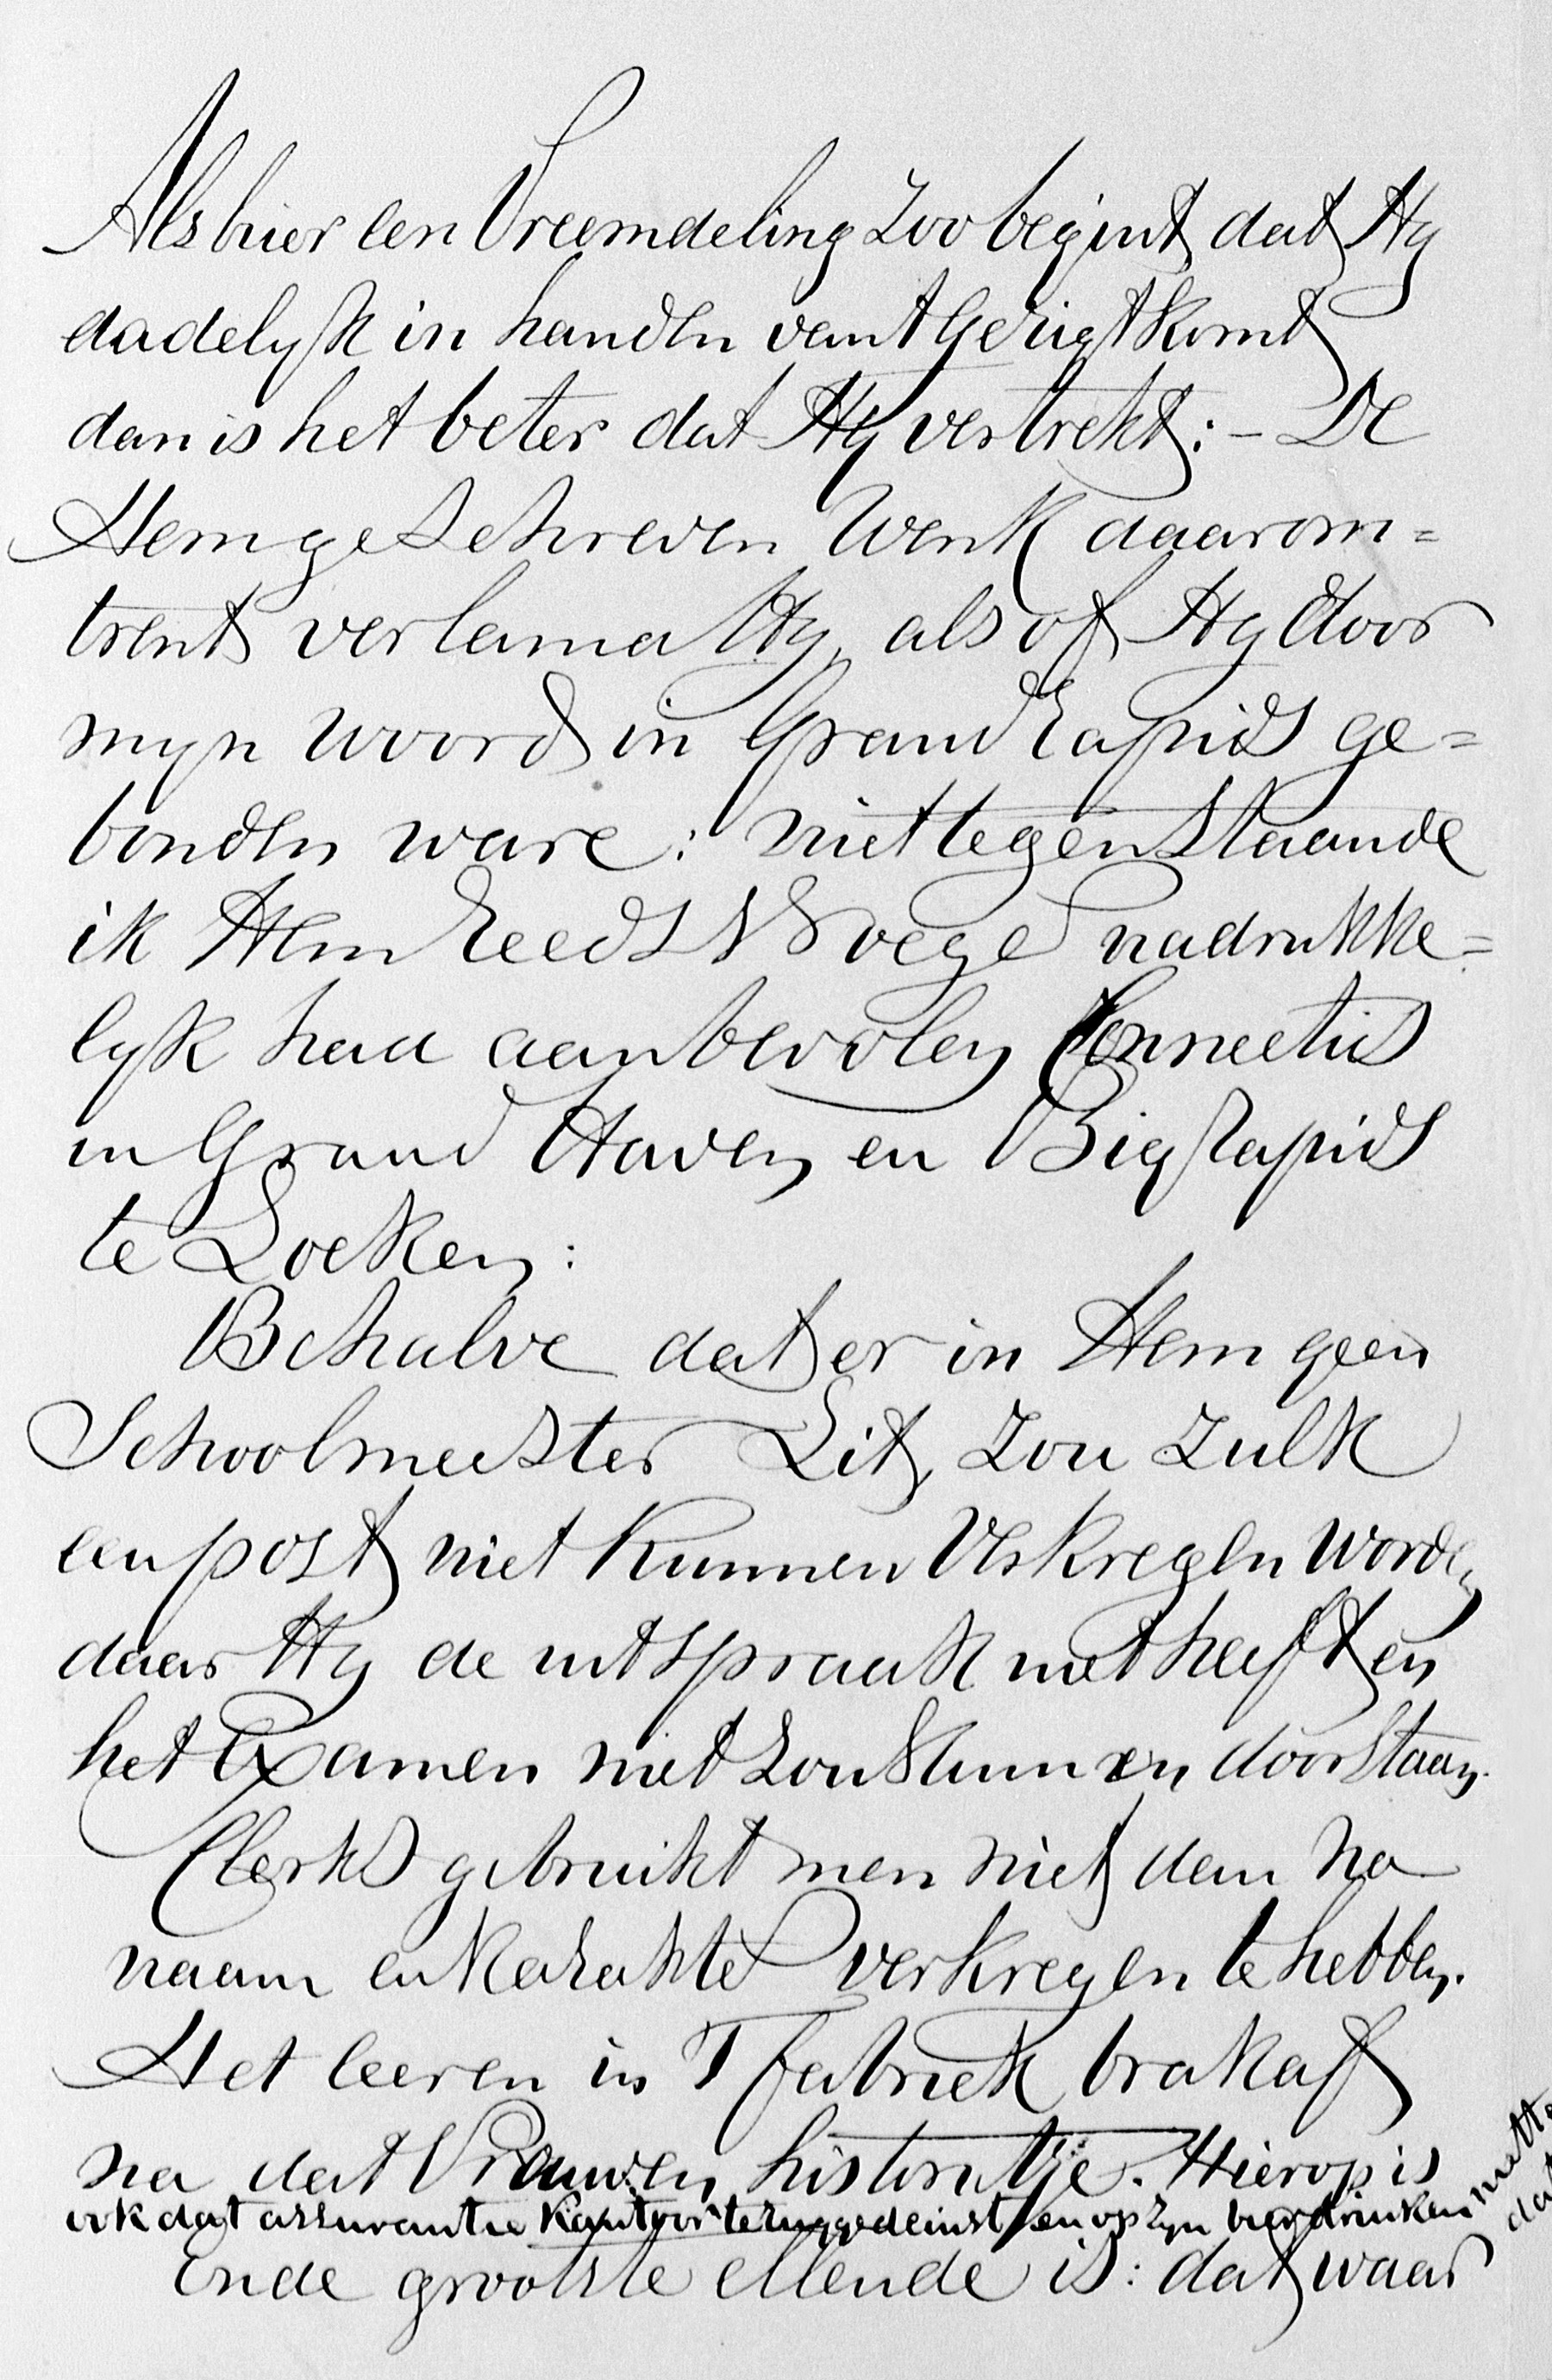 Als hier een Vreemdeling Zoo begint dat Hy
dadelyk in handen vant Gerigt komt
dan is het beter dat Hy vertrekt: – De
Hem geschreven Wenk daarom=
trent verlamd Hy, alsof Hy door
myn woord in Grand Rapids ge=
bonden ware: niettegenstaande
ik Hem Reeds vroege nadrukke=
lyk had aanbevolen Connecties
in Grand Haven en Big Rapids
te Zoeken:
Behalve dat er in Hem geen
Schoolmeester Zit, Zou Zulk
een post niet kunnen Verkregen Worden
daar Hy de uitspraak niet heeft en
het Examen niet Zou kunnen doorstaan.
Clerks gebruikt men niet dan na
naam en karakter verkregen te hebben.
Het leeren in T fabriek brak af
na dat Vrouwen historietje. Hierop is
ook dat assurantie Kantoor teruggedeinst, en op zyn bierdrinken
Ende grootste ellende is: dat waar